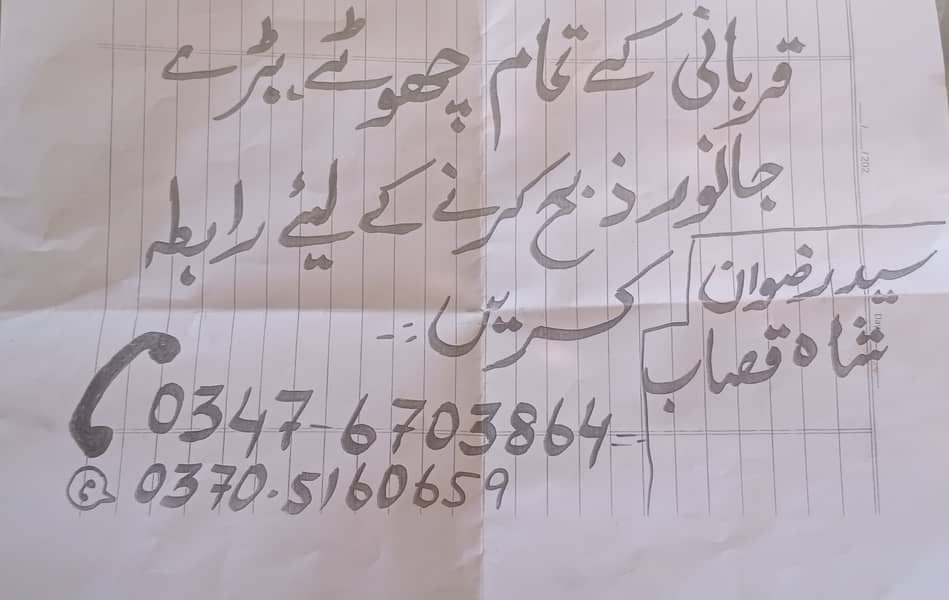 قربانی کے تمام چھوٹے بڑے
جانور ذبح کرنے کے لیٔے رابطہ
کریں :-
سید رضوان
شاہ قصاب
0347-6703864
0370.5160659